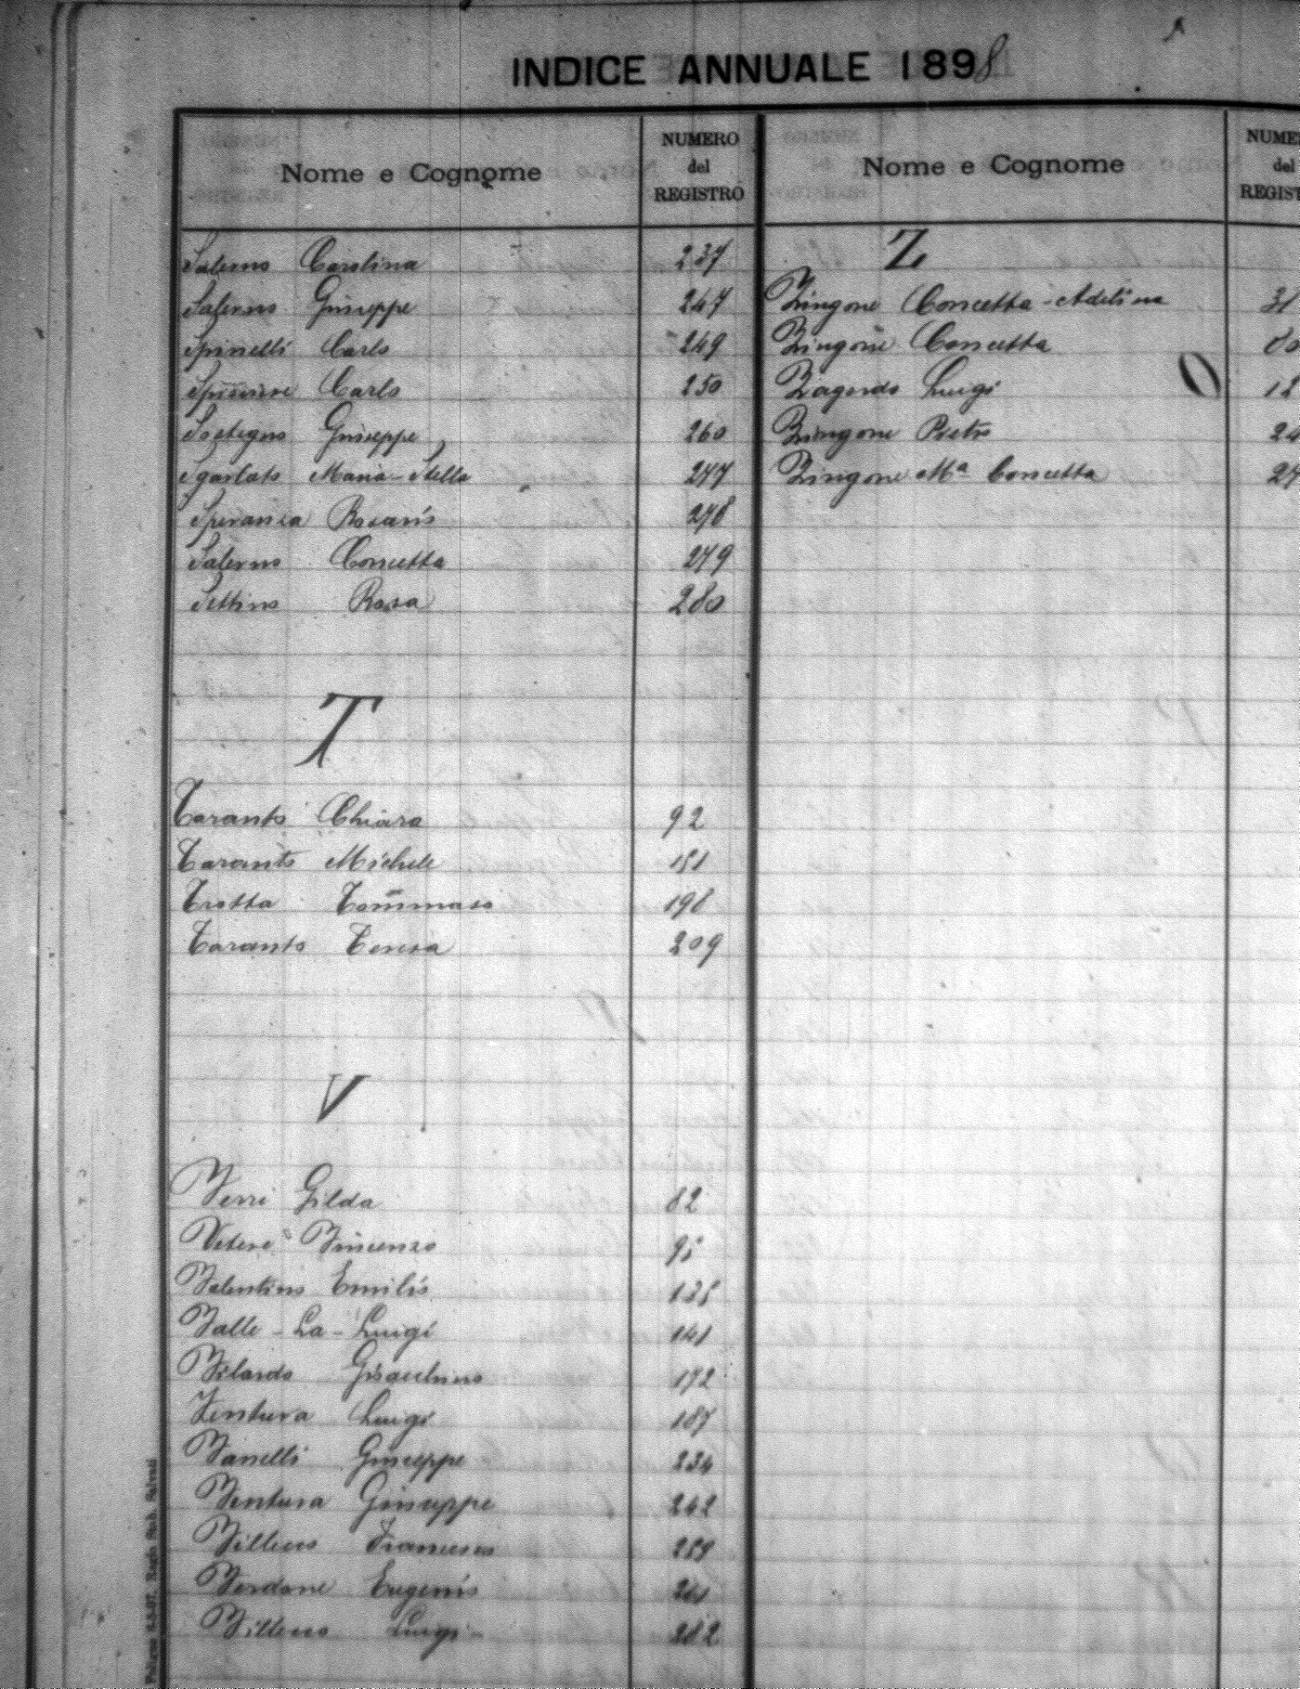 INDICE ANNUALE 1898
Nome e Cognome NUMERO del REGISTRO
Salerno Carolina 237
Salerno Giuseppe 247
Spinelli Carlo 249
Carlo 250
Sostegno Giuseppe 260
Sgarlato Maria-Stella 277
Speranza Rosario 278
Salerno Concetta 279
Settino Rosa 280
T
Taranto Chiara 92
Taranto Michele 151
Trotta Tommaso 198
Taranto Teresa 209
V
Verri Gilda 82
Vetere Vincenzo 95
Valentino Emilio 135
Valle-La-Luigi 141
Vilardo Gioacchino 172
Ventura Luigi 187
Vanelli Giuseppe 234
Ventura Giuseppe 242
Villecco Francesco 259
Verdone Eugenio 261
Villecco Luigi 282
Nome e Cognome NUME del REGIST
Z
Zingone Concetta-Adelina 31
Zingone Concetta 80
Zagordo Luigi 12
Zingone Pietro 24
Zingone Mª Concetta 27